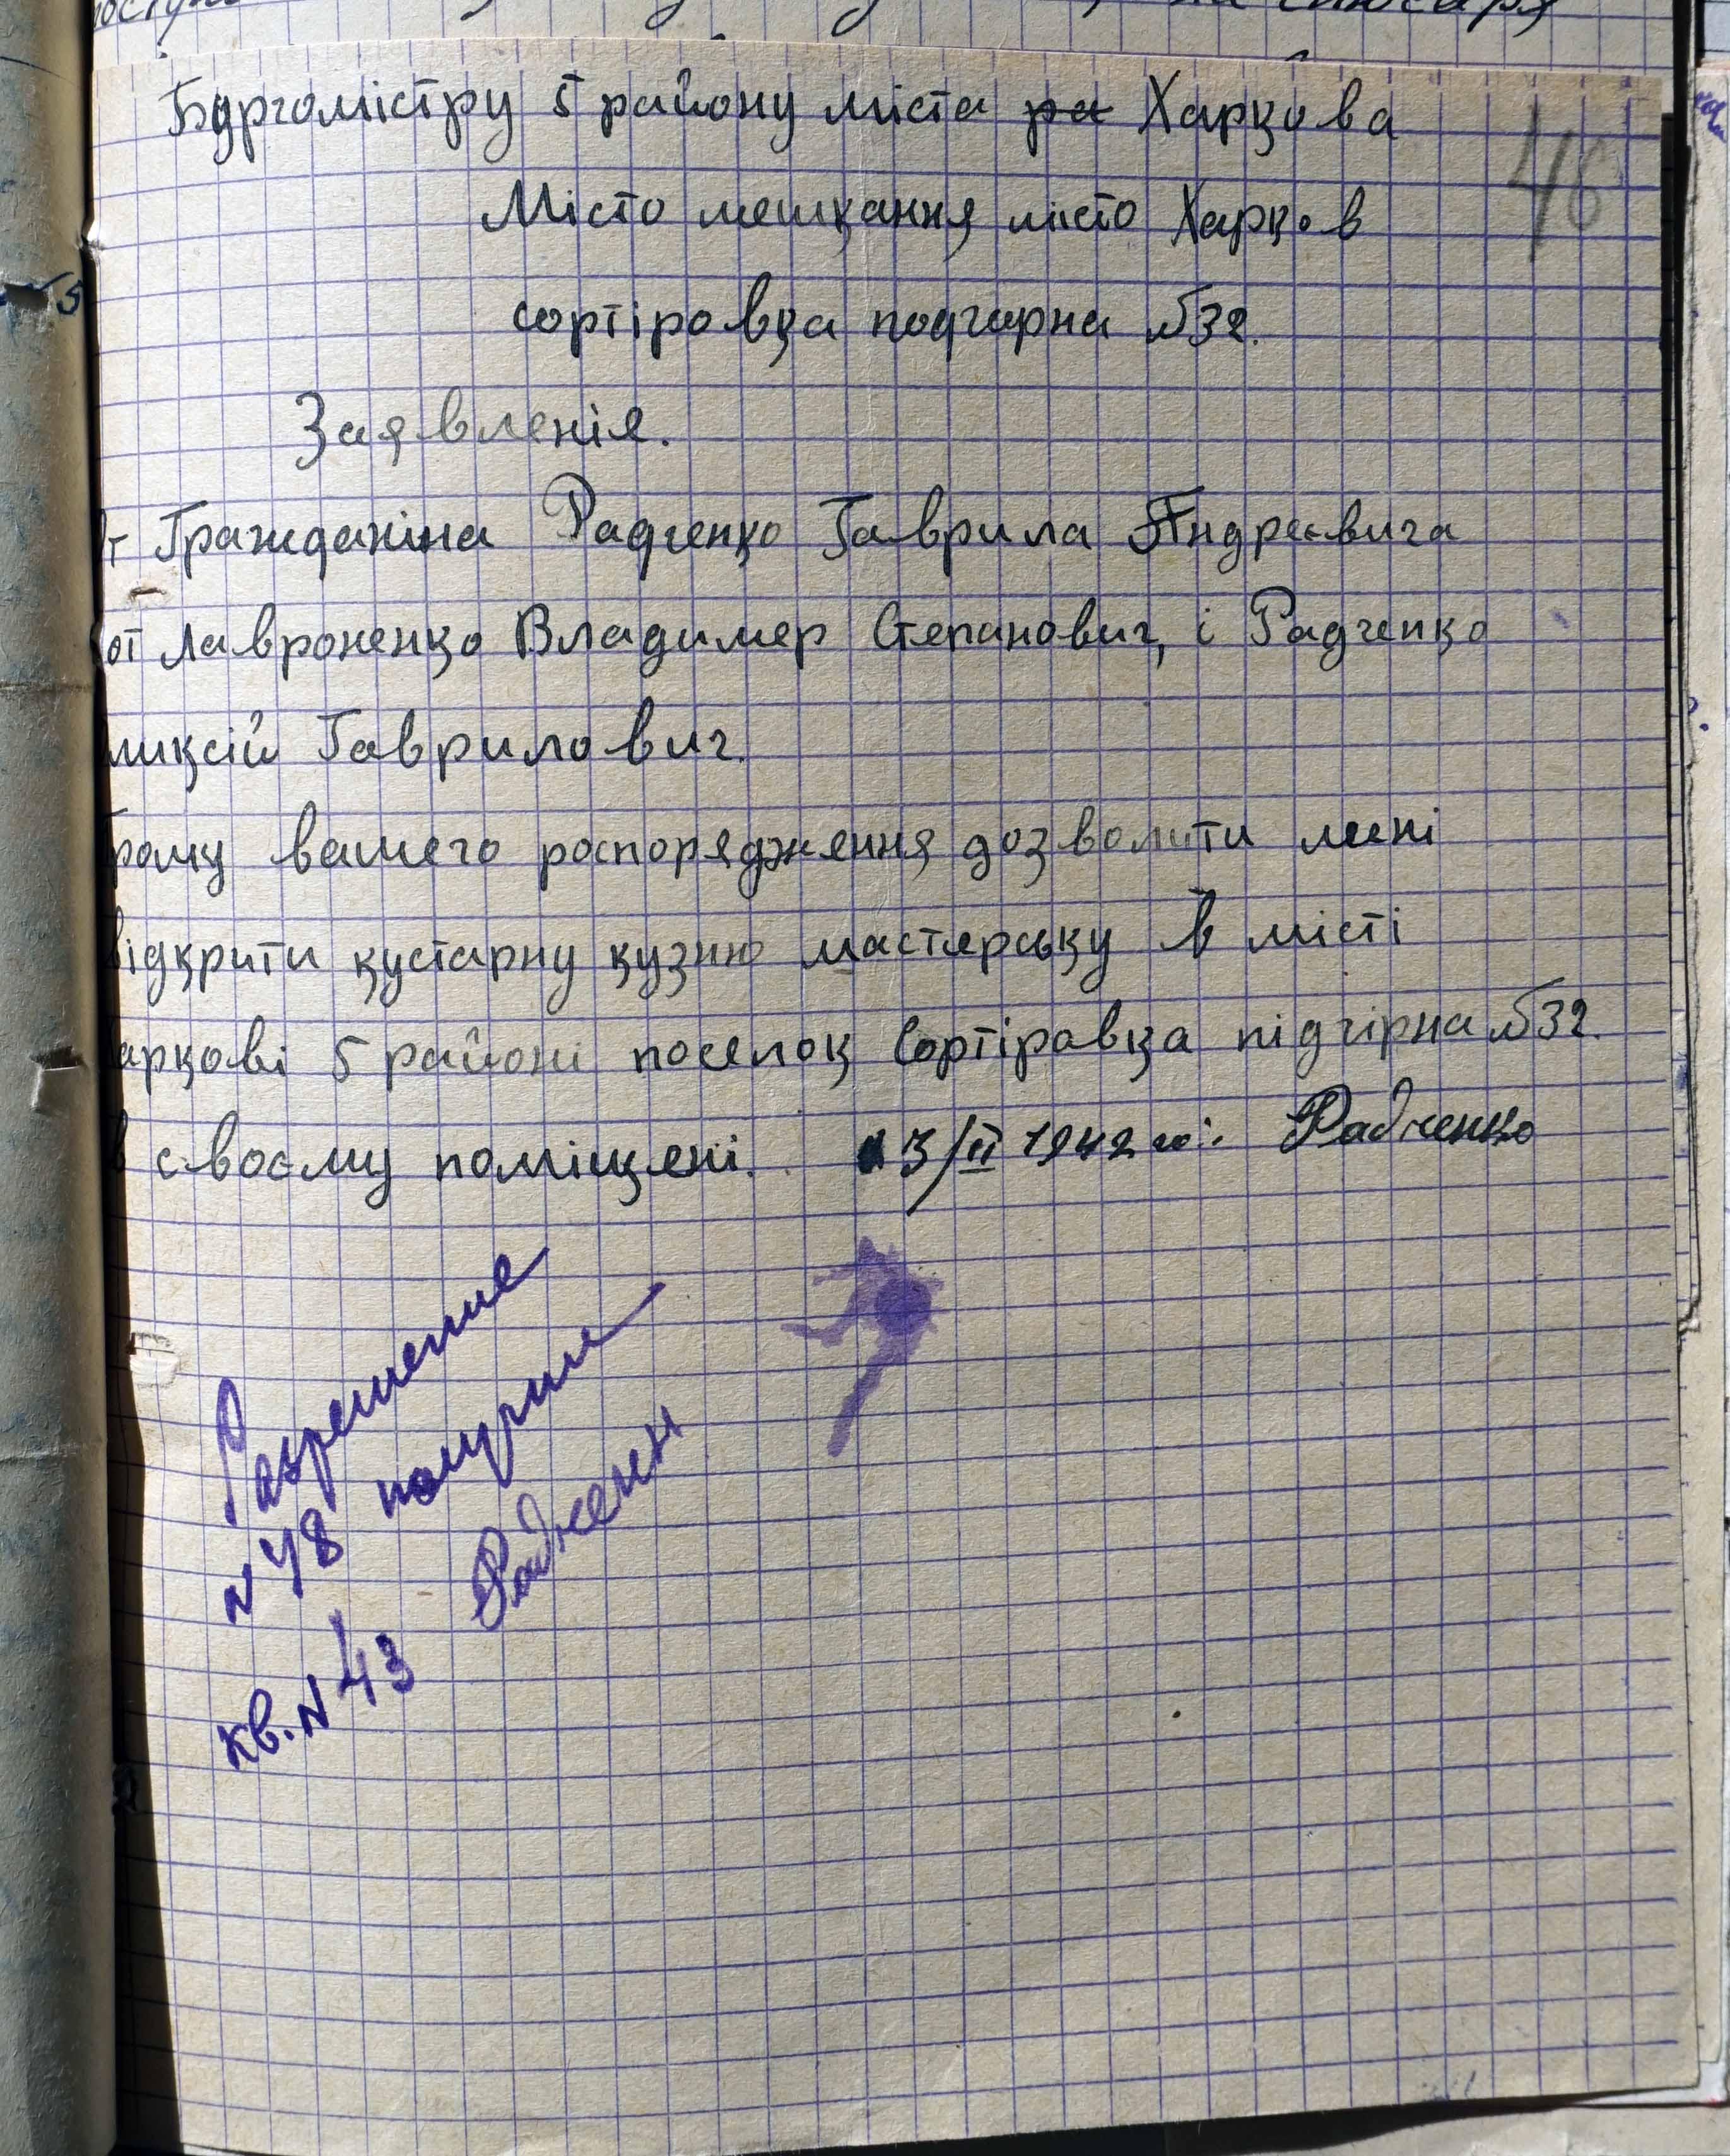 46
Бургомістру 5 району міста ра Харкова
Місто мешкання місто Харков
сортіровка подгорна №32.
Заявленія.
т Гражданіна Радченко Гаврила Андреевича
от Лавроненко Владимер Степанович, і Радченко
ликсій Гаврилович.
рошу вашего роспорядження дозволити мені
відкрити кустарну кузню мастерську в місті
аркові 5 районі поселок Сортіравка підгірна №32.
в своєму поміщені. 3/II 1942 го: Радченко
Разрешение
№48 получил
Радченк
кв. №43